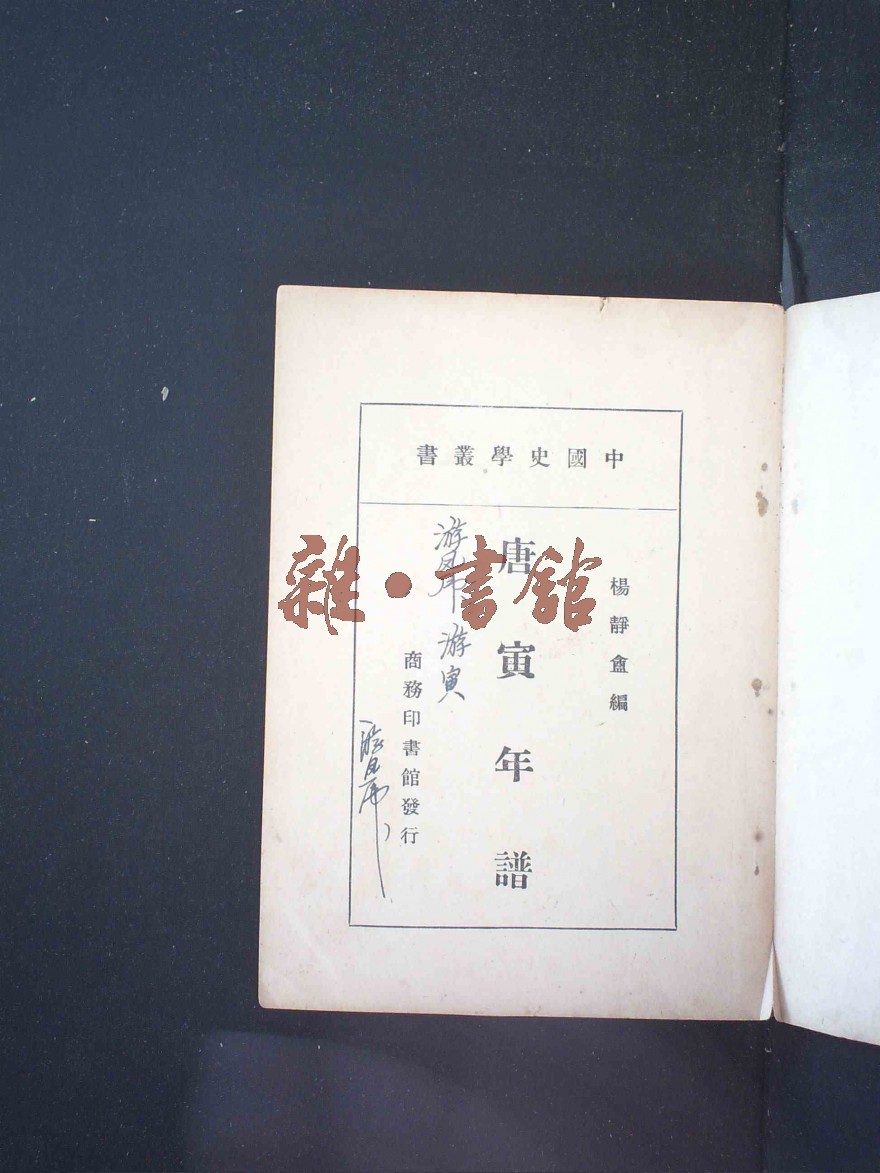 中國史學叢書
楊靜盦編
唐寅年譜
商務印書館發行
游寅
雜·書館